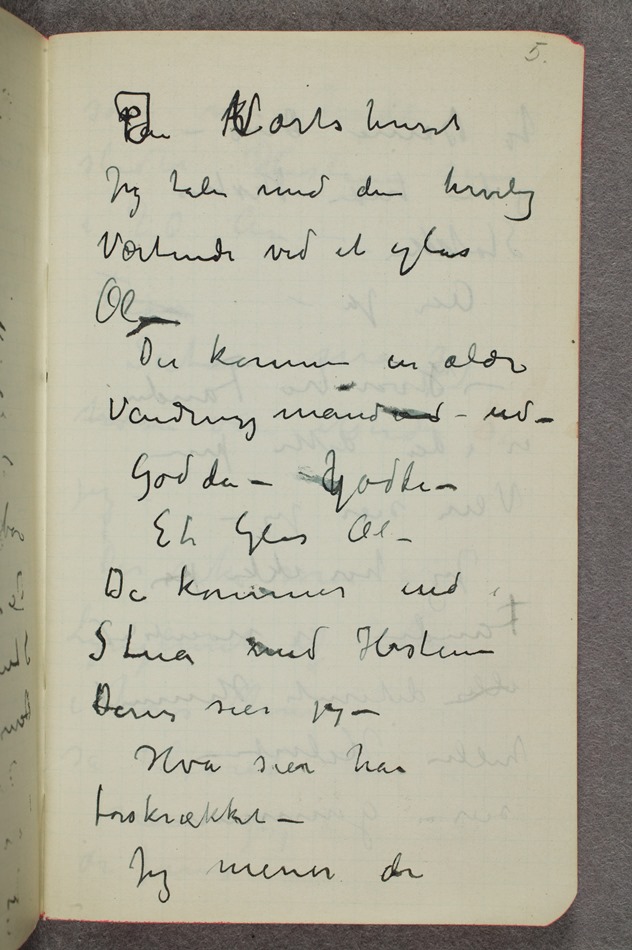 5.
Paa Værtshuset
Jeg taler med den hyggelig
Værtinde ved et glas
Øl –
Der kommer en ældre
Vandringsmand ind –
Goddag – Goddag –
Et Glas Øl –
De kommer ind i
Stua med Hesten
Deres sier jeg –
Hva sier han
forskrækket –
Jeg mener de